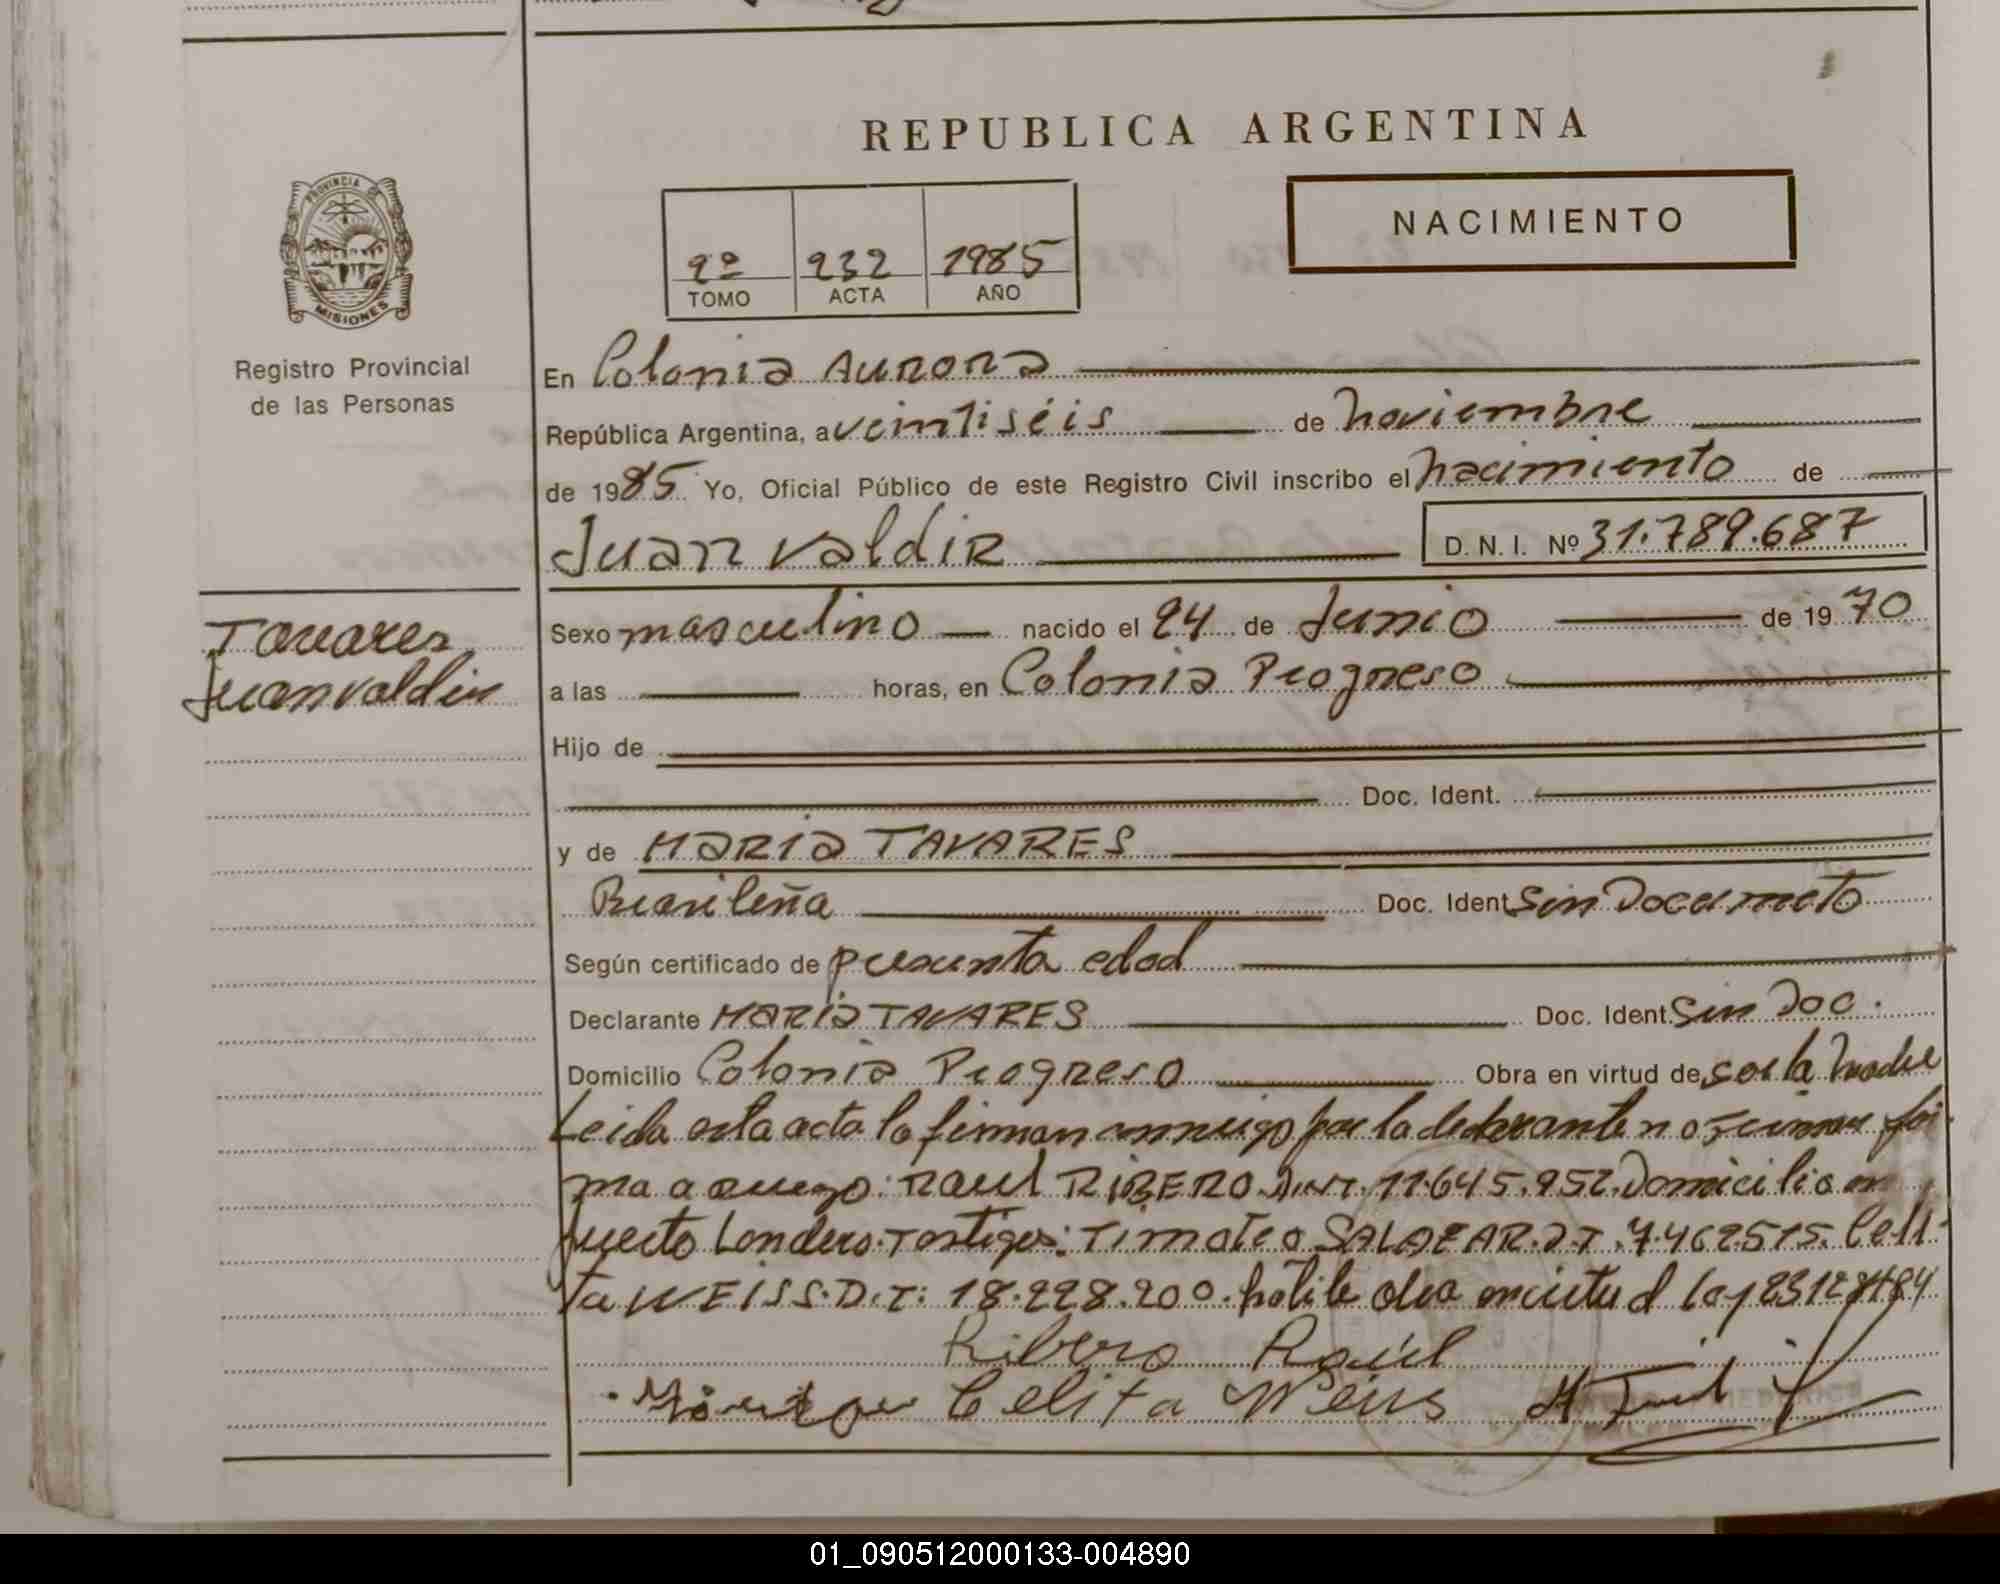 REPUBLICA ARGENTINA
NACIMIENTO
2º 232 1985
TOMO ACTA AÑO
PROVINCIA DE
MISIONES
Registro Provincial
de las Personas
Tavares
Juan valdir
En Colonia Aurora
República Argentina, a veintiséis de noviembre
de 1985 Yo, Oficial Público de este Registro Civil inscribo el nacimiento de
Juan valdir D. N. I. Nº 31.789.687
Sexo masculino nacido el 24 de Junio de 1970
a las horas, en Colonia Progreso
Hijo de
Doc. Ident.
y de MARIA TAVARES
Brasileña Doc. Ident Sin Documeto
Según certificado de presunta edad
Declarante MARIA TAVARES Doc. Ident. Sin Doc.
Domicilio Colonia Progreso Obra en virtud de ser la madre
Leida esta acta la firman conmigo por la declarante no firmar fir
ma a ruego: Raul RIBERO D.N.I. 11.645.952. Domicilio en
puerto Londero. Testigos: Timoteo SALAZAR. D.T. 7.462515. Celi
ta WEISS. D.T: 18.228.200. obra en virtud ley 23128/84
Ribero Raúl
Celita Weiss
01_090512000133-004890